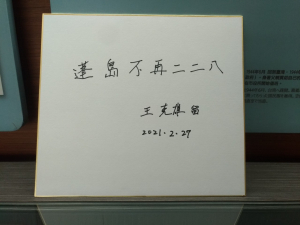 蓬島不再二二八
王克雄
2021.2.27